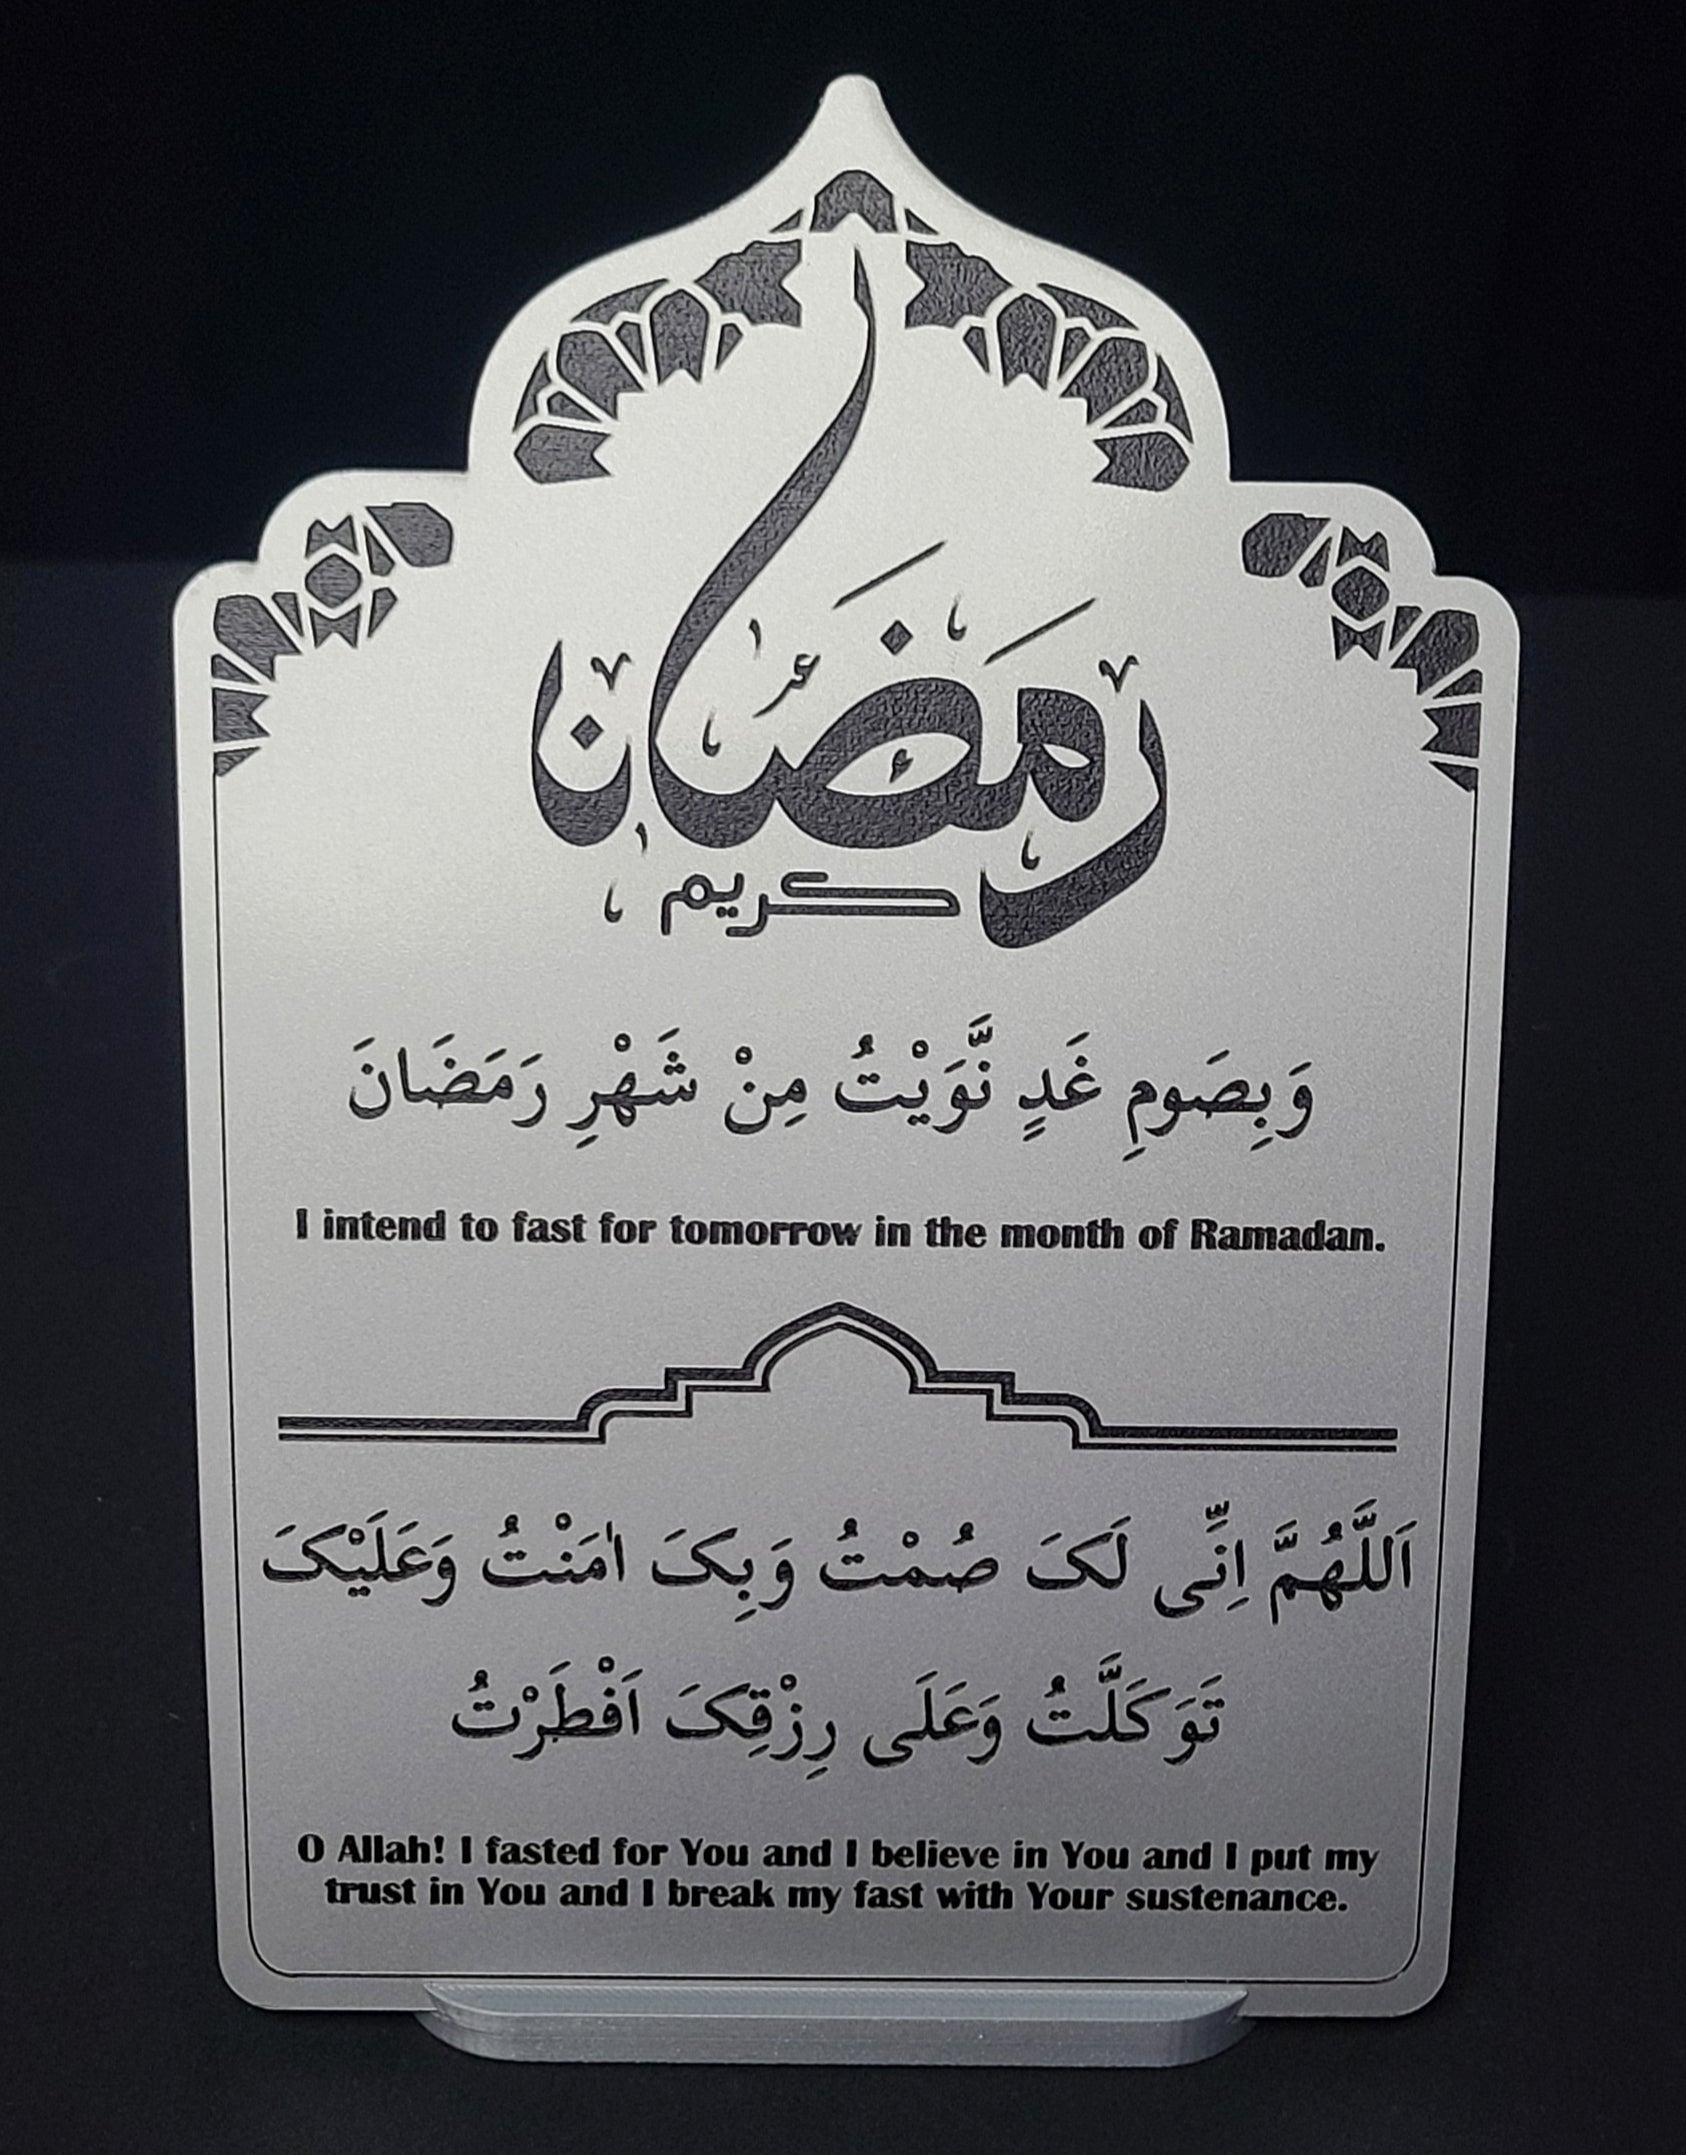 رمضان
كريم
وَبِصَومِ غَدٍ نَّوَيْتُ مِنْ شَهْرِ رَمَضَانَ
I intend to fast for tomorrow in the month of Ramadan.
اَللَّهُمَّ اِنِّی لَکَ صُمْتُ وَبِکَ اٰمَنْتُ وَعَلَيْکَ
تَوَكَلَّتُ وَعَلَی رِزْقِکَ اَفْطَرْتُ
O Allah! I fasted for You and I believe in You and I put my
trust in You and I break my fast with Your sustenance.